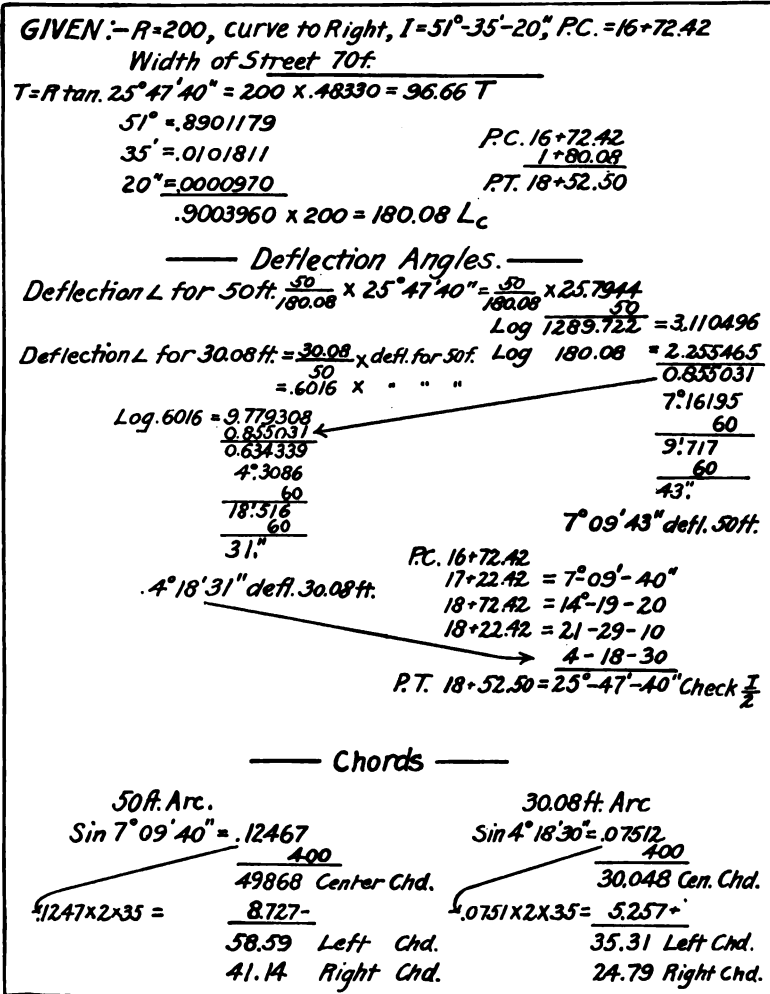 GIVEN:- R=200, Curve to Right, I=51°-35'-20", P.C.=16+72.42
Width of Street 70f.
T=R tan. 25°47'40" = 200 x .48330 = 96.66 T
51° =.8901179
35' =.0101811
20" =.0000970
.9003960 x 200 = 180.08 Lc
P.C. 16+72.42
1+80.08
P.T. 18+52.50
Deflection Angles.
Deflection ∠ for 50ft. 50/180.08 x 25°47'40" = 50/180.08 x 25.7944
50
Log 1289.722 = 3.110496
Deflection ∠ for 30.08ft. = 30.08/50 x defl. for 50f. Log 180.08 = 2.255465
= .6016 x " " "
0.855031
7.°16195
60
9.'717
60
43."
7°09'43" defl. 50ft.
Log .6016 = 9.779308
0.855031
0.634339
4.°3086
60
18.'516
60
31."
.4°18'31" defl. 30.08ft.
P.C. 16+72.42
17+22.42 = 7°-09'-40"
18+72.42 = 14°-19-20
18+22.42 = 21-29-10
4-18-30
P.T. 18+52.50 = 25°-47'-40" Check I/2
Chords
50ft. Arc.
Sin 7°09'40" = .12467
400
49868 Center Chd.
.1247x2x35 = 8.727-
58.59 Left Chd.
41.14 Right Chd.
30.08ft. Arc
Sin 4°18'30" = .07512
400
30.048 Cen. Chd.
.0751x2x35 = 5.257+
35.31 Left Chd.
24.79 Right Chd.